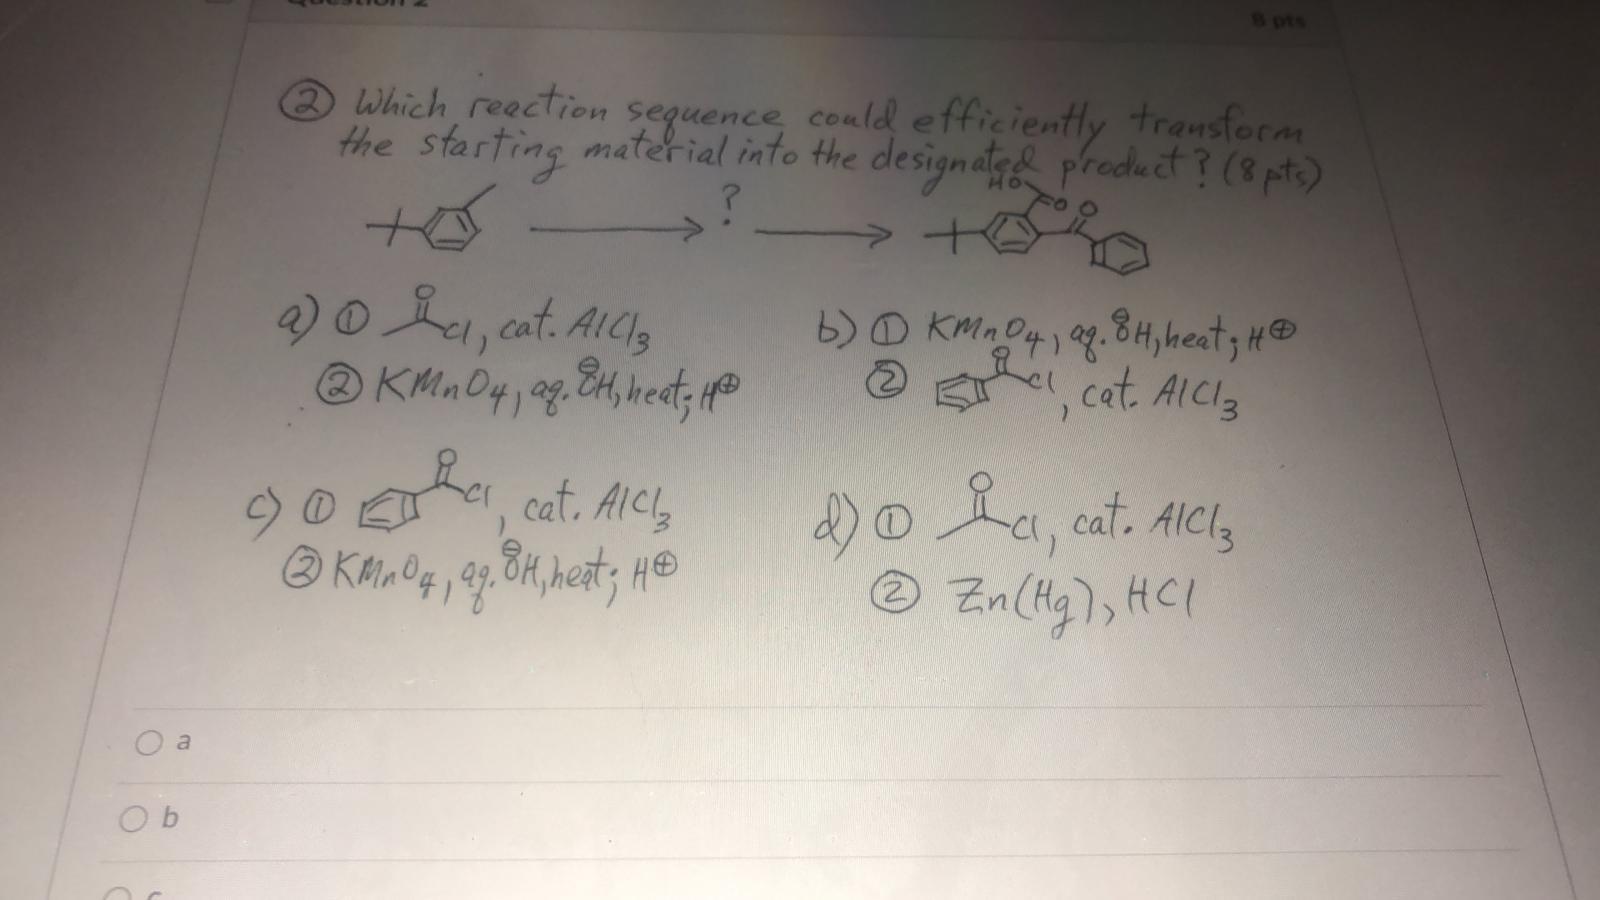 Question 2
8 pts
② Which reaction sequence could efficiently transform
the starting material into the designated product? (8 pts)
?
HO
O O
a) ① O Cl, cat. AlCl₃
② KMnO₄, aq. ⊖OH, heat; H⊕
b) ① KMnO₄, aq. ⊖OH, heat; H⊕
② O Cl, cat. AlCl₃
c) ① O Cl, cat. AlCl₃
② KMnO₄, aq. ⊖OH, heat; H⊕
d) ① O Cl, cat. AlCl₃
② Zn(Hg), HCl
a
b
c